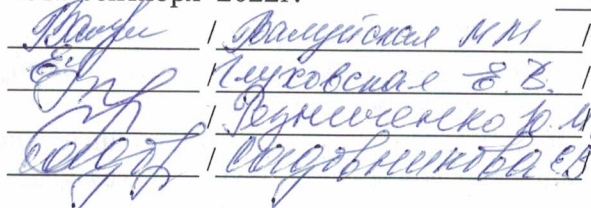 2022г.
/ Валуйская М М /
/ Глуховская Е.В. /
/ Резниченко Ю.М
/ Садовникова ЕВ